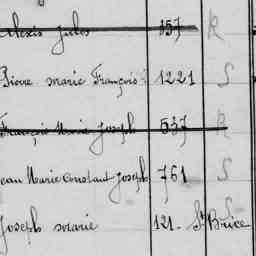 Alexis Jules 857 R
Pierre Marie François 1221 S
François Marie Joseph 537 R
ean Marie Constant Joseph 761 S
Joseph Marie 121. St Brice S